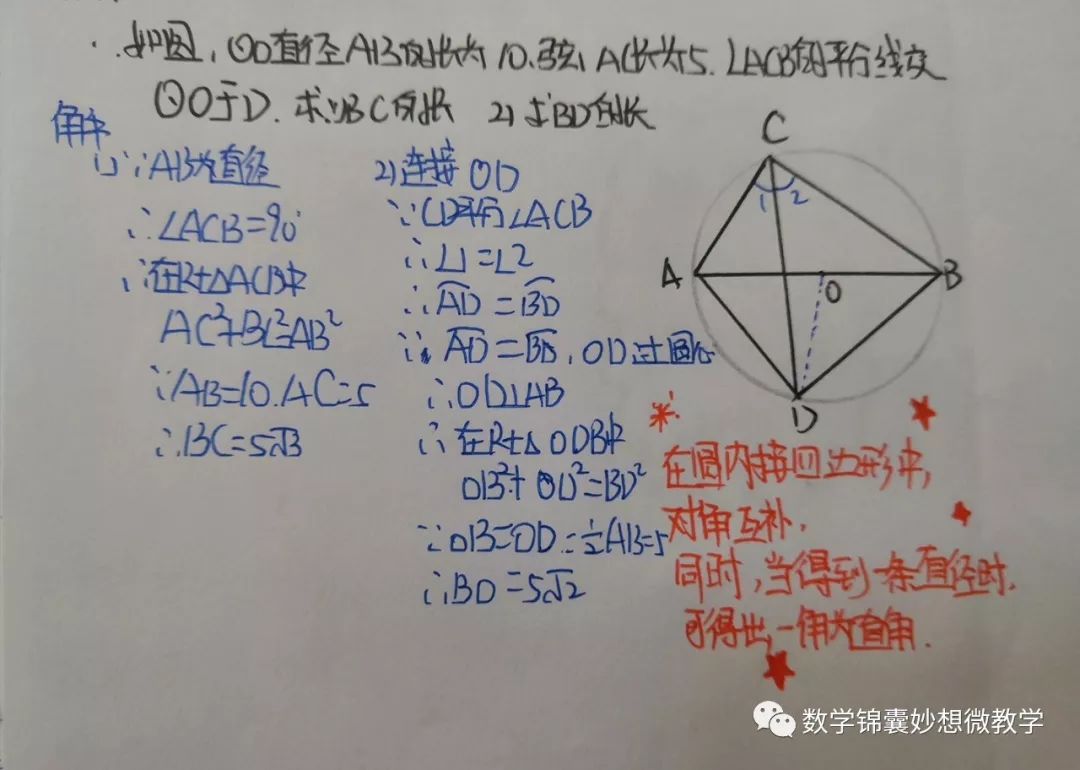 如图，⊙O直径AB的长为10.弦AC长为5.∠ACB的平分线交
⊙O于D.求1)BC的长 2)求BD的长
解
1)∵AB为直径
∴∠ACB=90°
∴在Rt△ACB中
AC²+BC²=AB²
∵AB=10.AC=5
∴BC=5√3
2)连接OD
∵CD平分∠ACB
∴∠1=∠2
∴AD=BD
∵AD=BD，OD过圆心
∴OD⊥AB
∴在Rt△ODB中
OB²+OD²=BD²
∵OB=OD=½AB=5
∴BD=5√2
C
1 2
A
O
B
D
※:
在圆内接四边形中，
对角互补.
同时，当得到一条直径时.
可得出,一角为直角.
数学锦囊妙想微教学